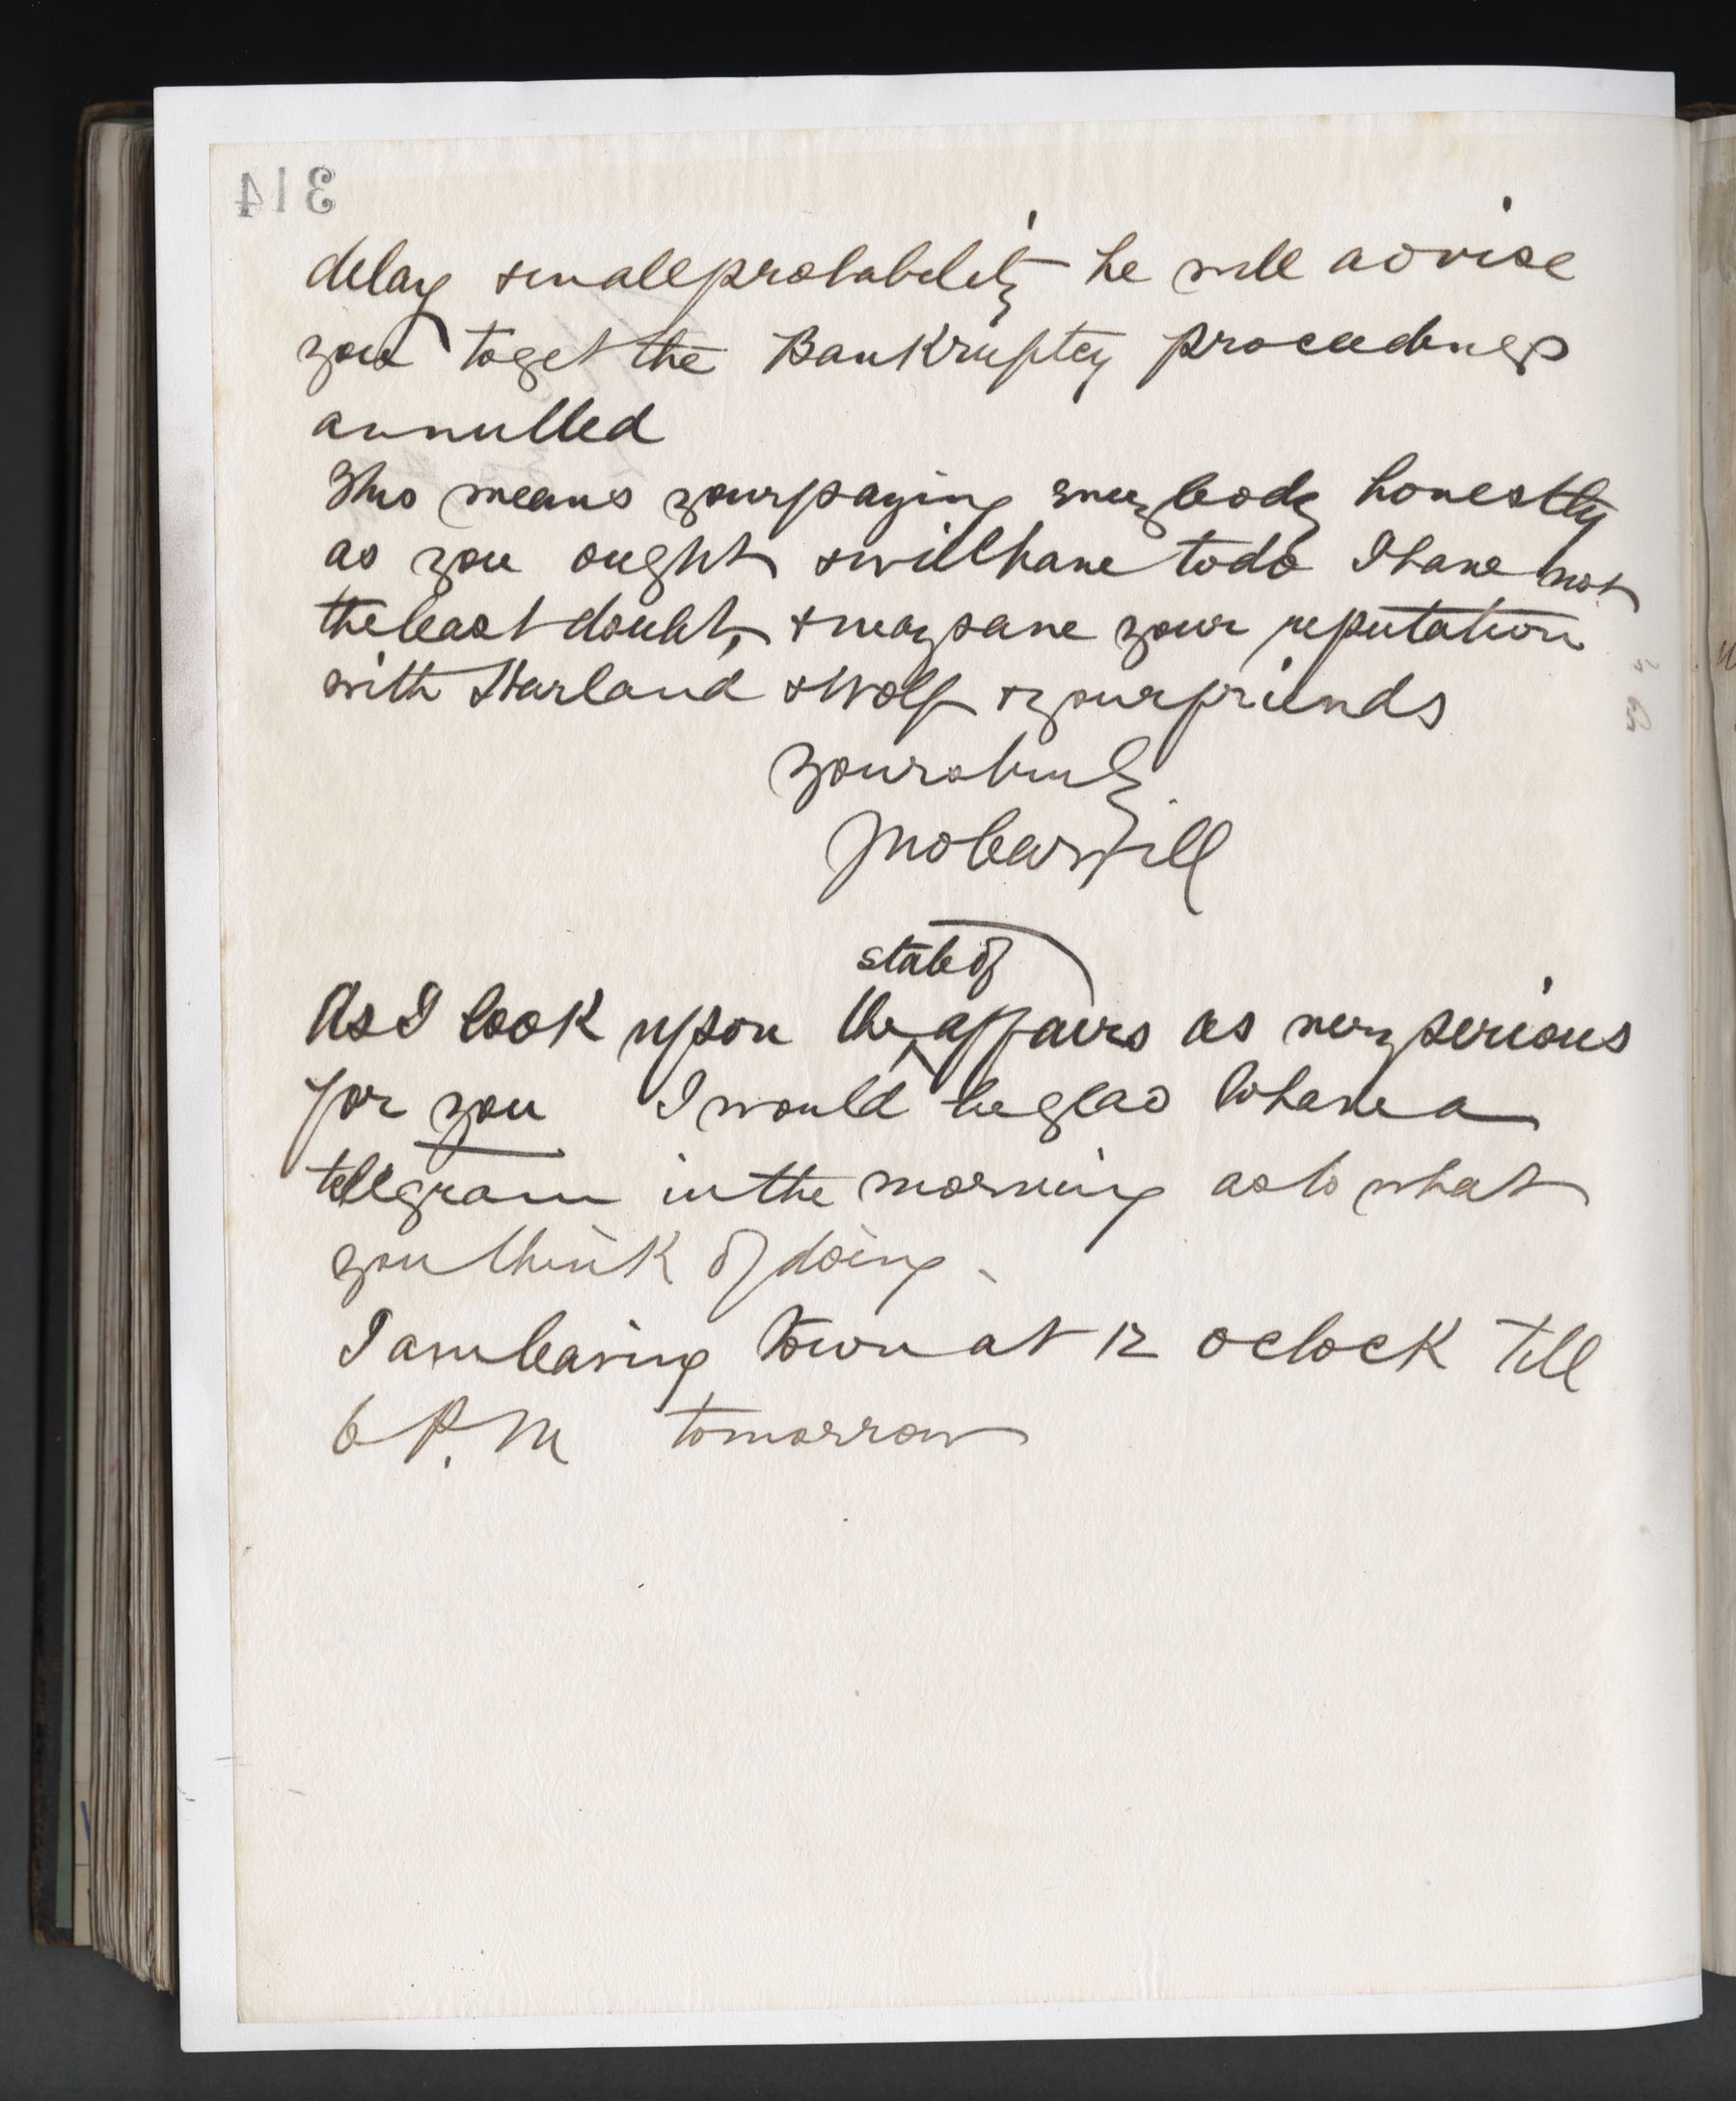 314
delay & in all probability he will advise
you to get the Bankruptcy proceedings
annulled
This means your paying everybody honestly
as you ought & will have to do I have not
the least doubt, & may save your reputation
with Harland & Wolf & your friends
Yours truly
state of
As I look upon the affairs as very serious
for you I would be glad to have a
telegram in the morning as to what
you think of doing.
I am leaving town at 12 oclock till
6 P.M tomorrow